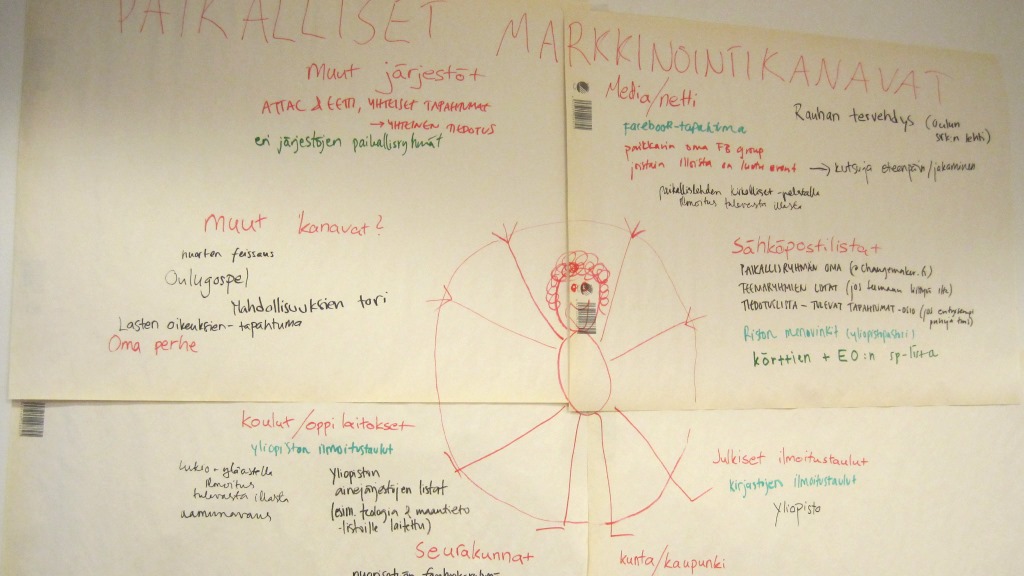 PAIKALLISET MARKKINOINTIKANAVAT
Muut järjestöt
ATTAC & EETTI, YHTEISET TAPAHTUMAT
→ YHTEINEN TIEDOTUS
eri järjestöjen paikallisryhmät
Muut kanavat?
nuorten feissaus
Oulugospel
Mahdollisuuksien tori
Lasten oikeuksien-tapahtuma
Oma perhe
Media/netti
Rauhan tervehdys (Oulun
srk:n lehti)
facebook-tapahtuma
paikkarin oma FB group
joistain illoista on luotu eventit → kutsuja eteenpäin/jakaminen
paikallislehden kirkolliset -palstalla
ilmoitus tulevasta illasta
Sähköpostilista+
PAIKALLISRYHMÄN OMA (@changemaker.fi)
TEEMARYHMIEN LISTAT (jos teemaan liittyvä ilta)
TIEDOTUSLISTA - TULEVAT TAPAHTUMAT -OSIO (jos
Riston menovinkit (yliopistopastori)
körttien + EO:n sp-lista
koulut/oppilaitokset
yliopiston ilmoitustaulut
Lukio + yläasteelle
ilmoitus
tulevasta illasta
aamunavaus
yliopiston
ainejärjestöjen listat
(esim. teologia & maantieto
-listoille laitettu)
Julkiset ilmoitustaulut
kirjastojen ilmoitustaulut
Yliopisto
Seurakunnat
kunta/kaupunki